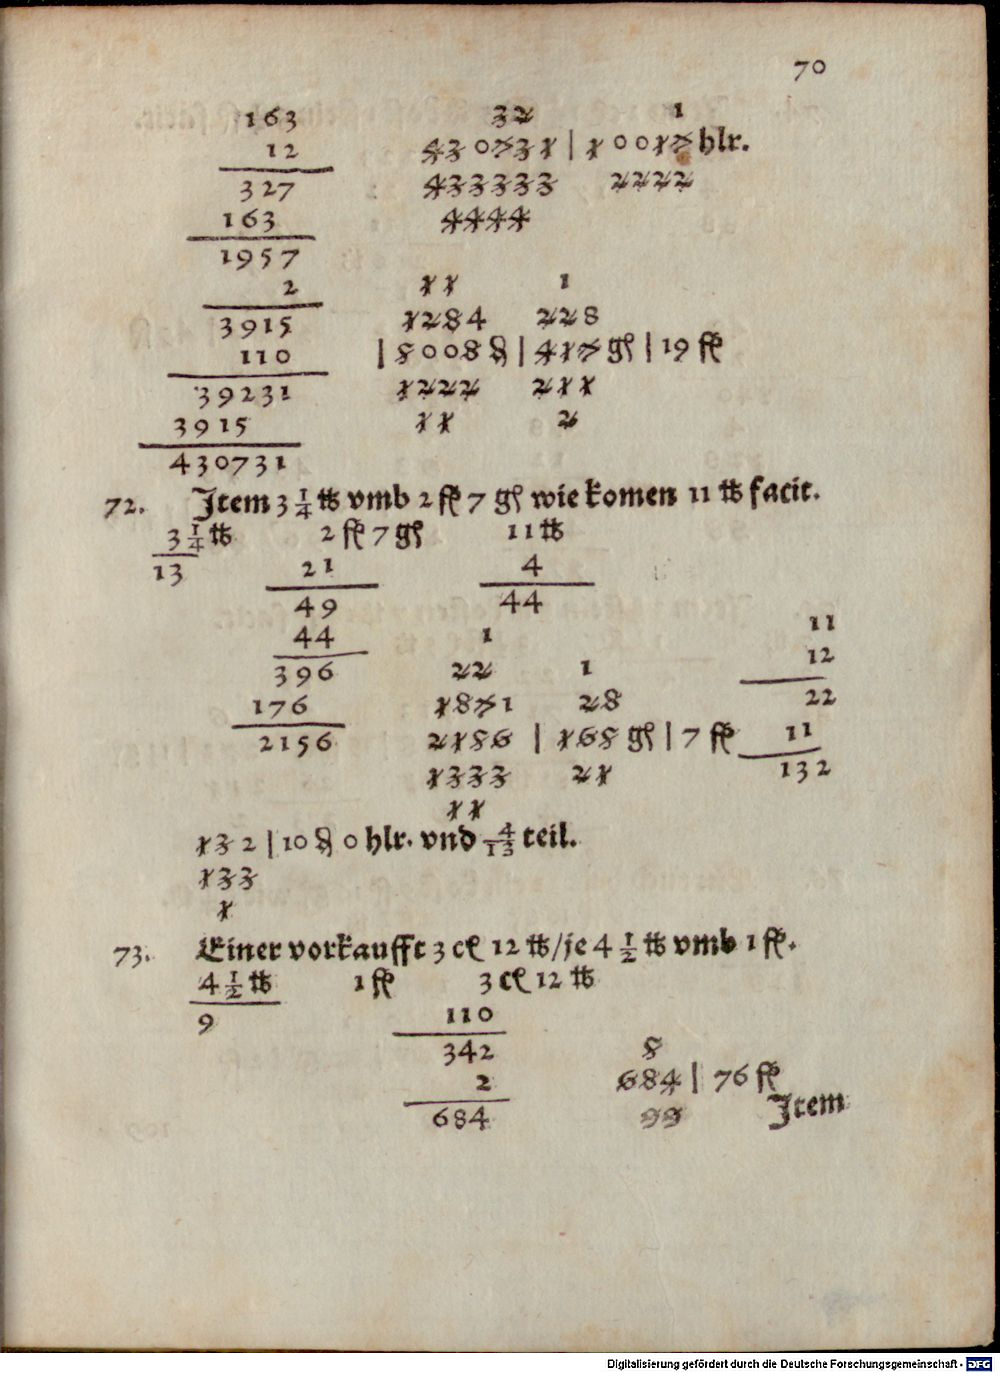 70
163 32 1
12 430731 | 10017 hlr.
327 433333 2222
163 4444
1957
2 11 1
3915 1284 228
110 | 8008 ₰ | 417 gl | 19 fl
39231 1222 211
3915 11 2
430731
72. Item 3 1/4 ℔ vmb 2 fl 7 gl wie komen 11 ℔ facit.
3 1/4 ℔ 2 fl 7 gl 11 ℔
13 21 4
49 44
44 1 11
396 22 1 12
176 1871 28 22
2156 2186 | 168 gl | 7 fl 11
1333 21 132
11
132 | 10 ₰ 0 hlr. vnd 4/13 teil.
133
1
73. Einer vorkaufft 3 cł 12 ℔/je 4 1/2 ℔ vmb 1 fl.
4 1/2 ℔ 1 fl 3 cł 12 ℔
9 110
342 8
2 684 | 76 fl
684 99 Item
Digitalisierung gefördert durch die Deutsche Forschungsgemeinschaft - DFG